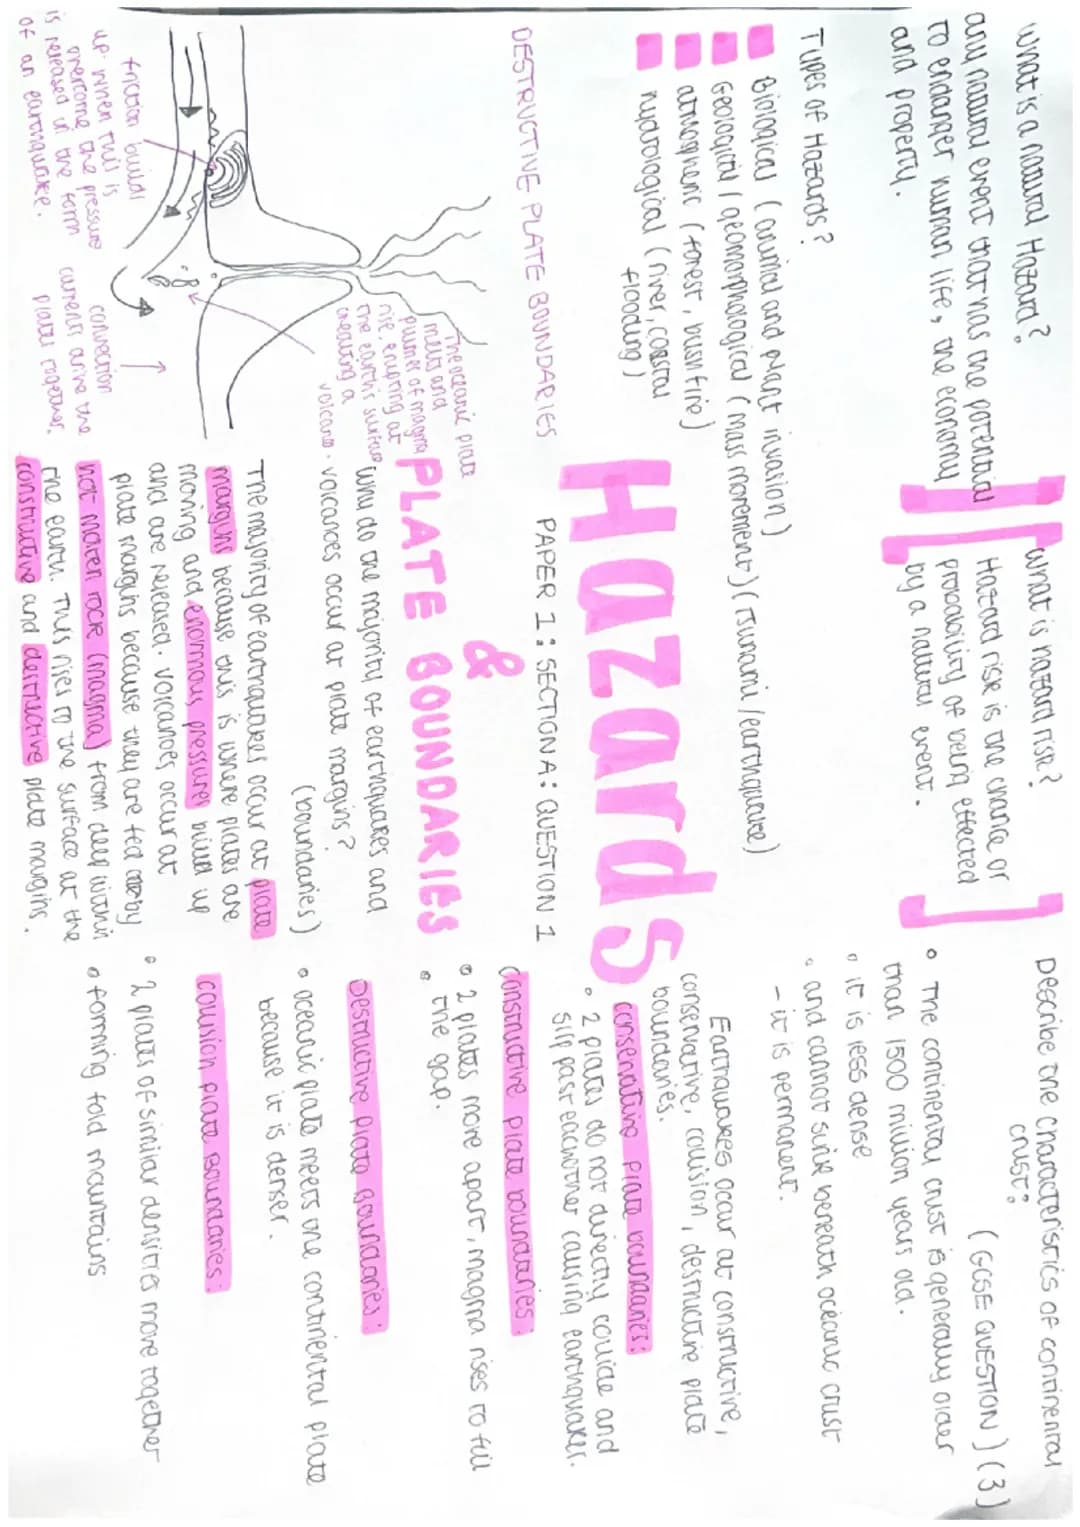 What is a natural Hazard?
any natural event that has the potential
to endanger human life, the economy
and property.
Types of Hazards?
Biological (animal and plant invasion)
Geological / geomorphological (mass movement) (Tsunami / earthquake)
atmospheric (forest, bushfire)
hydrological (river, coastal
flooding)
DESTRUCTIVE PLATE BOUNDARIES
The oceanic plate
melts and
plumes of magma
rise, erupting at
the earth's surface
creating a
volcano.
friction builds
up. When this is
overcome the pressure
is released in the form
of an earthquake.
convection
currents drive the
plates together.
What is hazard risk?
Hazard risk is the chance or
probability of being effected
by a natural event.
Hazards
PAPER 1: SECTION A: QUESTION 1
&
PLATE BOUNDARIES
Why do the majority of earthquakes and
volcanoes occur at plate margins?
(boundaries)
The majority of earthquakes occur at plate
margins because this is where plates are
moving and enormous pressures build up
and are released. Volcanoes occur at
plate margins because they are fed by
hot molten rock (magma) from deep within
the earth. This rises to the surface at the
constructive and destructive plate margins.
Describe the characteristics of continental
crust?
(GCSE QUESTION) (3)
• The continental crust is generally older
than 1500 million years old.
• it is less dense
• and cannot sink beneath oceanic crust
- it is permanent.
Earthquakes occur at constructive,
conservative, collision, destructive plate
boundaries.
conservative plate boundaries:
• 2 plates do not directly collide and
slip past eachother causing earthquakes.
Constructive plate boundaries:
• 2 plates move apart, magma rises to fill
• the gap.
Destructive Plate Boundaries:
• oceanic plate meets the continental plate
because it is denser.
collision plate Boundaries:
• 2 plates of similar densities move together
• forming fold mountains